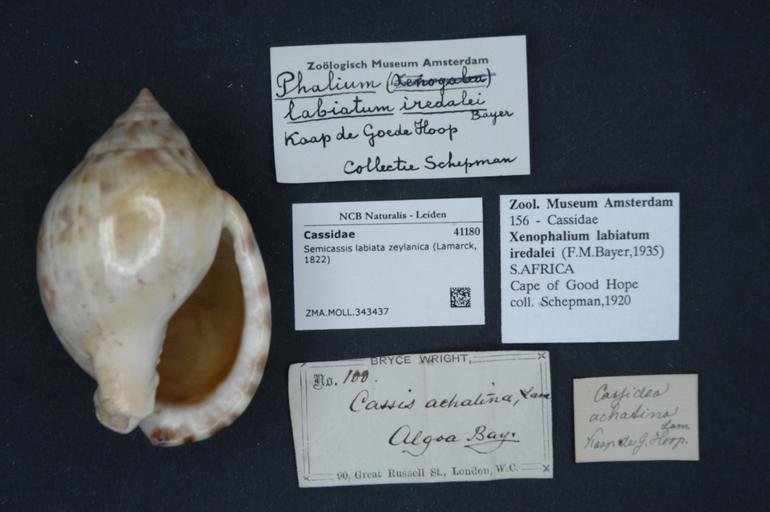 Zoölogisch Museum Amsterdam
Phalium (Xenogalea)
labiatum iredalei
Bayer
Kaap de Goede Hoop
Collectie Schepman
NCB Naturalis - Leiden
Cassidae 41180
Semicassis labiata zeylanica (Lamarck,
1822)
ZMA.MOLL.343437
Zool. Museum Amsterdam
156 - Cassidae
Xenophalium labiatum
iredalei (F.M.Bayer,1935)
S.AFRICA
Cape of Good Hope
coll. Schepman,1920
BRYCE WRIGHT,
No. 100.
Cassis achatina, Lam
Algoa Bay.
90, Great Russell St., London, W.C.
Cassidea
achatina
Lam
Kaap de G. Hoop.